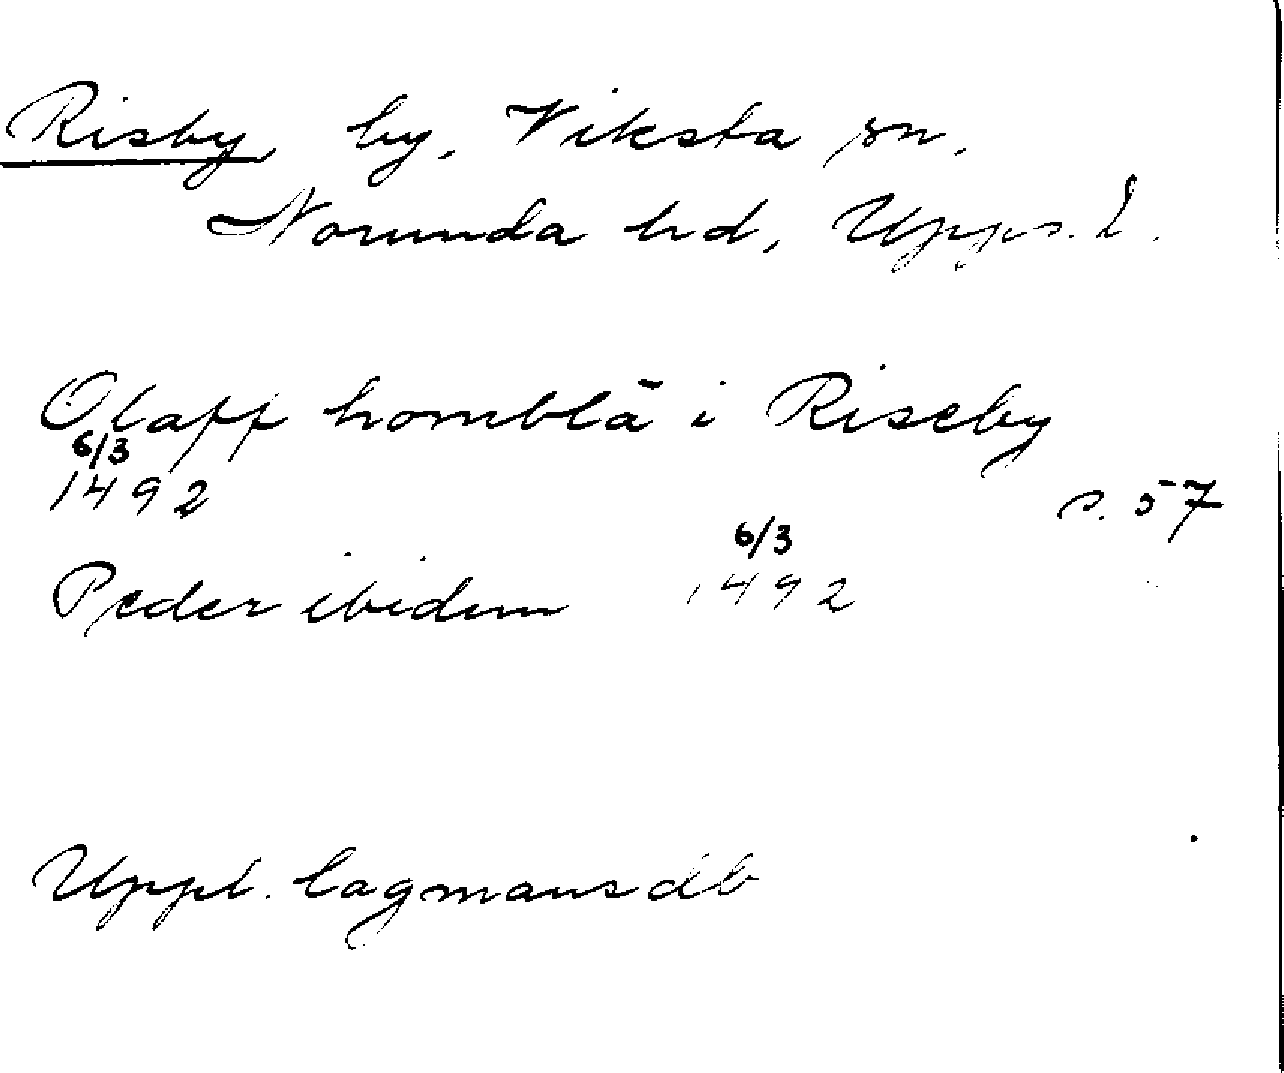 Risby, by, Viksta sn.
Norunda hd, Upps. l.
Olaff homblā i Riseby
6/3
1492 s. 57
Peder ibidem 6/3 1492
Uppl. lagmansdb